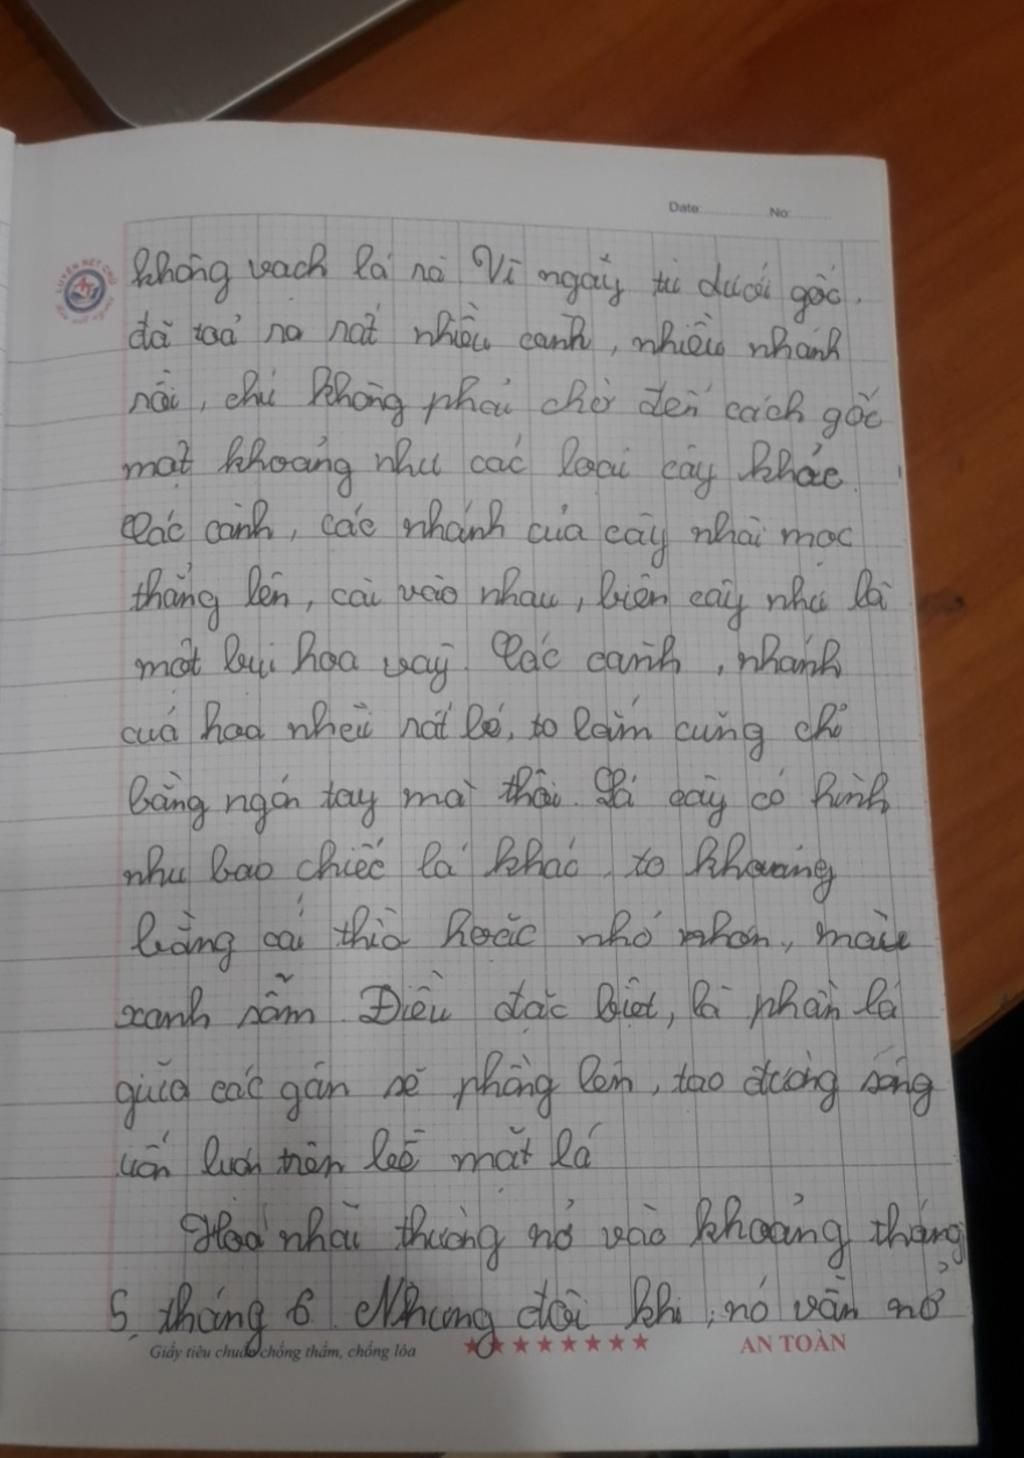 Date: No:
LUYỆN NÉT CHỮ
không vach lá rõ Vì ngay từ dưới gốc,
đã toả ra rất nhiều cành, nhiều nhánh
rồi, chứ không phải chờ đến cách gốc
một khoảng như các loại cây khác.
Các cành, các nhánh của cây nhài mọc
thẳng lên, cài vào nhau, biến cây như là
một bụi hoa vậy. Các cành, nhánh
của hoa nhài rất bé, to lắm cũng chỉ
bằng ngón tay mà thôi. Lá cây có hình
như bao chiếc lá khác, to khoảng
bằng cái thìa hoặc nhỏ hơn, màu
xanh sẫm. Điều đặc biệt, là phần lá
giữa các gân sẽ phồng lên, tạo đường sóng
uốn lượn trên bề mặt lá
Hoa nhài thường nở vào khoảng tháng
5, tháng 6. Nhưng đôi khi, nó vẫn nở
Giấy tiêu chuẩn chống thấm, chống lóa
AN TOÀN